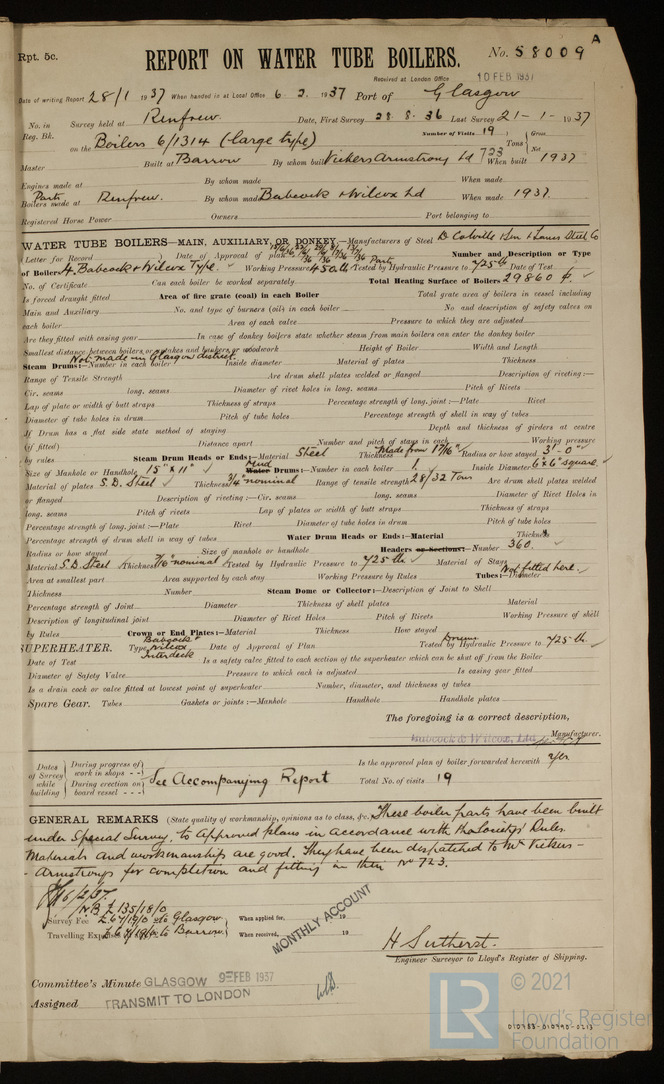 A
Rpt. 5c.
REPORT ON WATER TUBE BOILERS.
No. 58009
Received at London Office 10 FEB 1937
Date of writing Report 28/1 1937 When handed in at Local Office 6. 2. 1937 Port of Glasgow
No. in Reg. Bk. Survey held at Renfrew Date, First Survey 28. 8. 36 Last Survey 21-1-1937
Number of Visits 19
on the Boilers 6/1314 (-large type) Tons Gross Net
Master Built at Barrow By whom built Vickers Armstrong Ld 723 When built 1937
Engines made at By whom made When made
Parts Boilers made at Renfrew. By whom made Babcock & Wilcox Ld When made 1937.
Registered Horse Power Owners Port belonging to
WATER TUBE BOILERS—MAIN, AUXILIARY, OR DONKEY.—Manufacturers of Steel D. Colville & Son & Lanark Steel Co
(Letter for Record ) Date of Approval of plan Number and Description or Type
of Boilers 4. Babcock & Wilcox Type. Working Pressure 450 lb Parts Tested by Hydraulic Pressure to 725 lb Date of Test
No. of Certificate Can each boiler be worked separately Total Heating Surface of Boilers 29860
Is forced draught fitted Area of fire grate (coal) in each Boiler Total grate area of boilers in vessel including
Main and Auxiliary No. and type of burners (oil) in each boiler No. and description of safety valves on
each boiler Area of each valve Pressure to which they are adjusted
Are they fitted with easing gear In case of donkey boilers state whether steam from main boilers can enter the donkey boiler
Smallest distance between boilers or uptakes and bunkers or woodwork Height of Boiler Width and Length
Steam Drums:—Number in each boiler Not made in Glasgow district. Inside diameter Material of plates Thickness
Range of Tensile Strength Are drum shell plates welded or flanged Description of riveting:—
Cir. seams long. seams Diameter of rivet holes in long. seams Pitch of Rivets
Lap of plate or width of butt straps Thickness of straps Percentage strength of long. joint:—Plate Rivet
Diameter of tube holes in drum Pitch of tube holes Percentage strength of shell in way of tubes
If Drum has a flat side state method of staying Depth and thickness of girders at centre
(if fitted) Distance apart Number and pitch of stays in each Working pressure
by rules Steam Drum Heads or Ends:—Material Steel Thickness Made from 1 7/16" Radius or how stayed 3'-0"
Size of Manhole or Handhole 15" x 11" Water Mud Drums:—Number in each boiler 1. Inside Diameter 6"x6" square.
Material of plates S.D. Steel Thickness 3/4" nominal Range of tensile strength 28/32 Tons Are drum shell plates welded
or flanged Description of riveting:—Cir. seams long. seams Diameter of Rivet Holes in
long. seams Pitch of rivets Lap of plates or width of butt straps Thickness of straps
Percentage strength of long. joint:—Plate Rivet Diameter of tube holes in drum Pitch of tube holes
Percentage strength of drum shell in way of tubes Water Drum Heads or Ends:—Material Thickness
Radius or how stayed Size of manhole or handhole Headers or Sections:—Number 360.
Material S.D. Steel Thickness 7/16" nominal Tested by Hydraulic Pressure to 725 lb Material of Stays Not fitted here.
Area at smallest part Area supported by each stay Working Pressure by Rules Tubes:—Diameter
Thickness Number Steam Dome or Collector:—Description of Joint to Shell
Percentage strength of Joint Diameter Thickness of shell plates Material
Description of longitudinal joint Diameter of Rivet Holes Pitch of Rivets Working Pressure of shell
by Rules Crown or End Plates:—Material Thickness How stayed
SUPERHEATER. Type Babcock & Wilcox Interdeck Date of Approval of Plan Tested by Hydraulic Pressure to Drums 725 lb
Date of Test Is a safety valve fitted to each section of the superheater which can be shut off from the Boiler
Diameter of Safety Valve Pressure to which each is adjusted Is easing gear fitted
Is a drain cock or valve fitted at lowest point of superheater Number, diameter, and thickness of tubes
Spare Gear. Tubes Gaskets or joints:—Manhole Handhole Handhole plates
The foregoing is a correct description,
Babcock & Wilcox, Ltd. Manufacturer.
Dates of Survey while building During progress of work in shops - - During erection on board vessel - - - See Accompanying Report
Is the approved plan of boiler forwarded herewith yes
Total No. of visits 19
GENERAL REMARKS (State quality of workmanship, opinions as to class, &c. These boiler parts have been built
under Special Survey, to Approved plans in accordance with the Society's Rules.
Materials and workmanship are good. They have been despatched to Mr Vickers-
-Armstrongs for completion and fitting in their No 723.
6/2/37.
N.B £135/18/0
Survey Fee £67/19/0 to Glasgow When applied for, 19
Travelling Expenses £67/19/0 to Barrow. When received, 19
MONTHLY ACCOUNT
H Sutherst.
Engineer Surveyor to Lloyd's Register of Shipping.
Committee's Minute GLASGOW 9 FEB 1937
Assigned TRANSMIT TO LONDON
© 2021
LR
Lloyd's Register
Foundation
010983-010990-0213